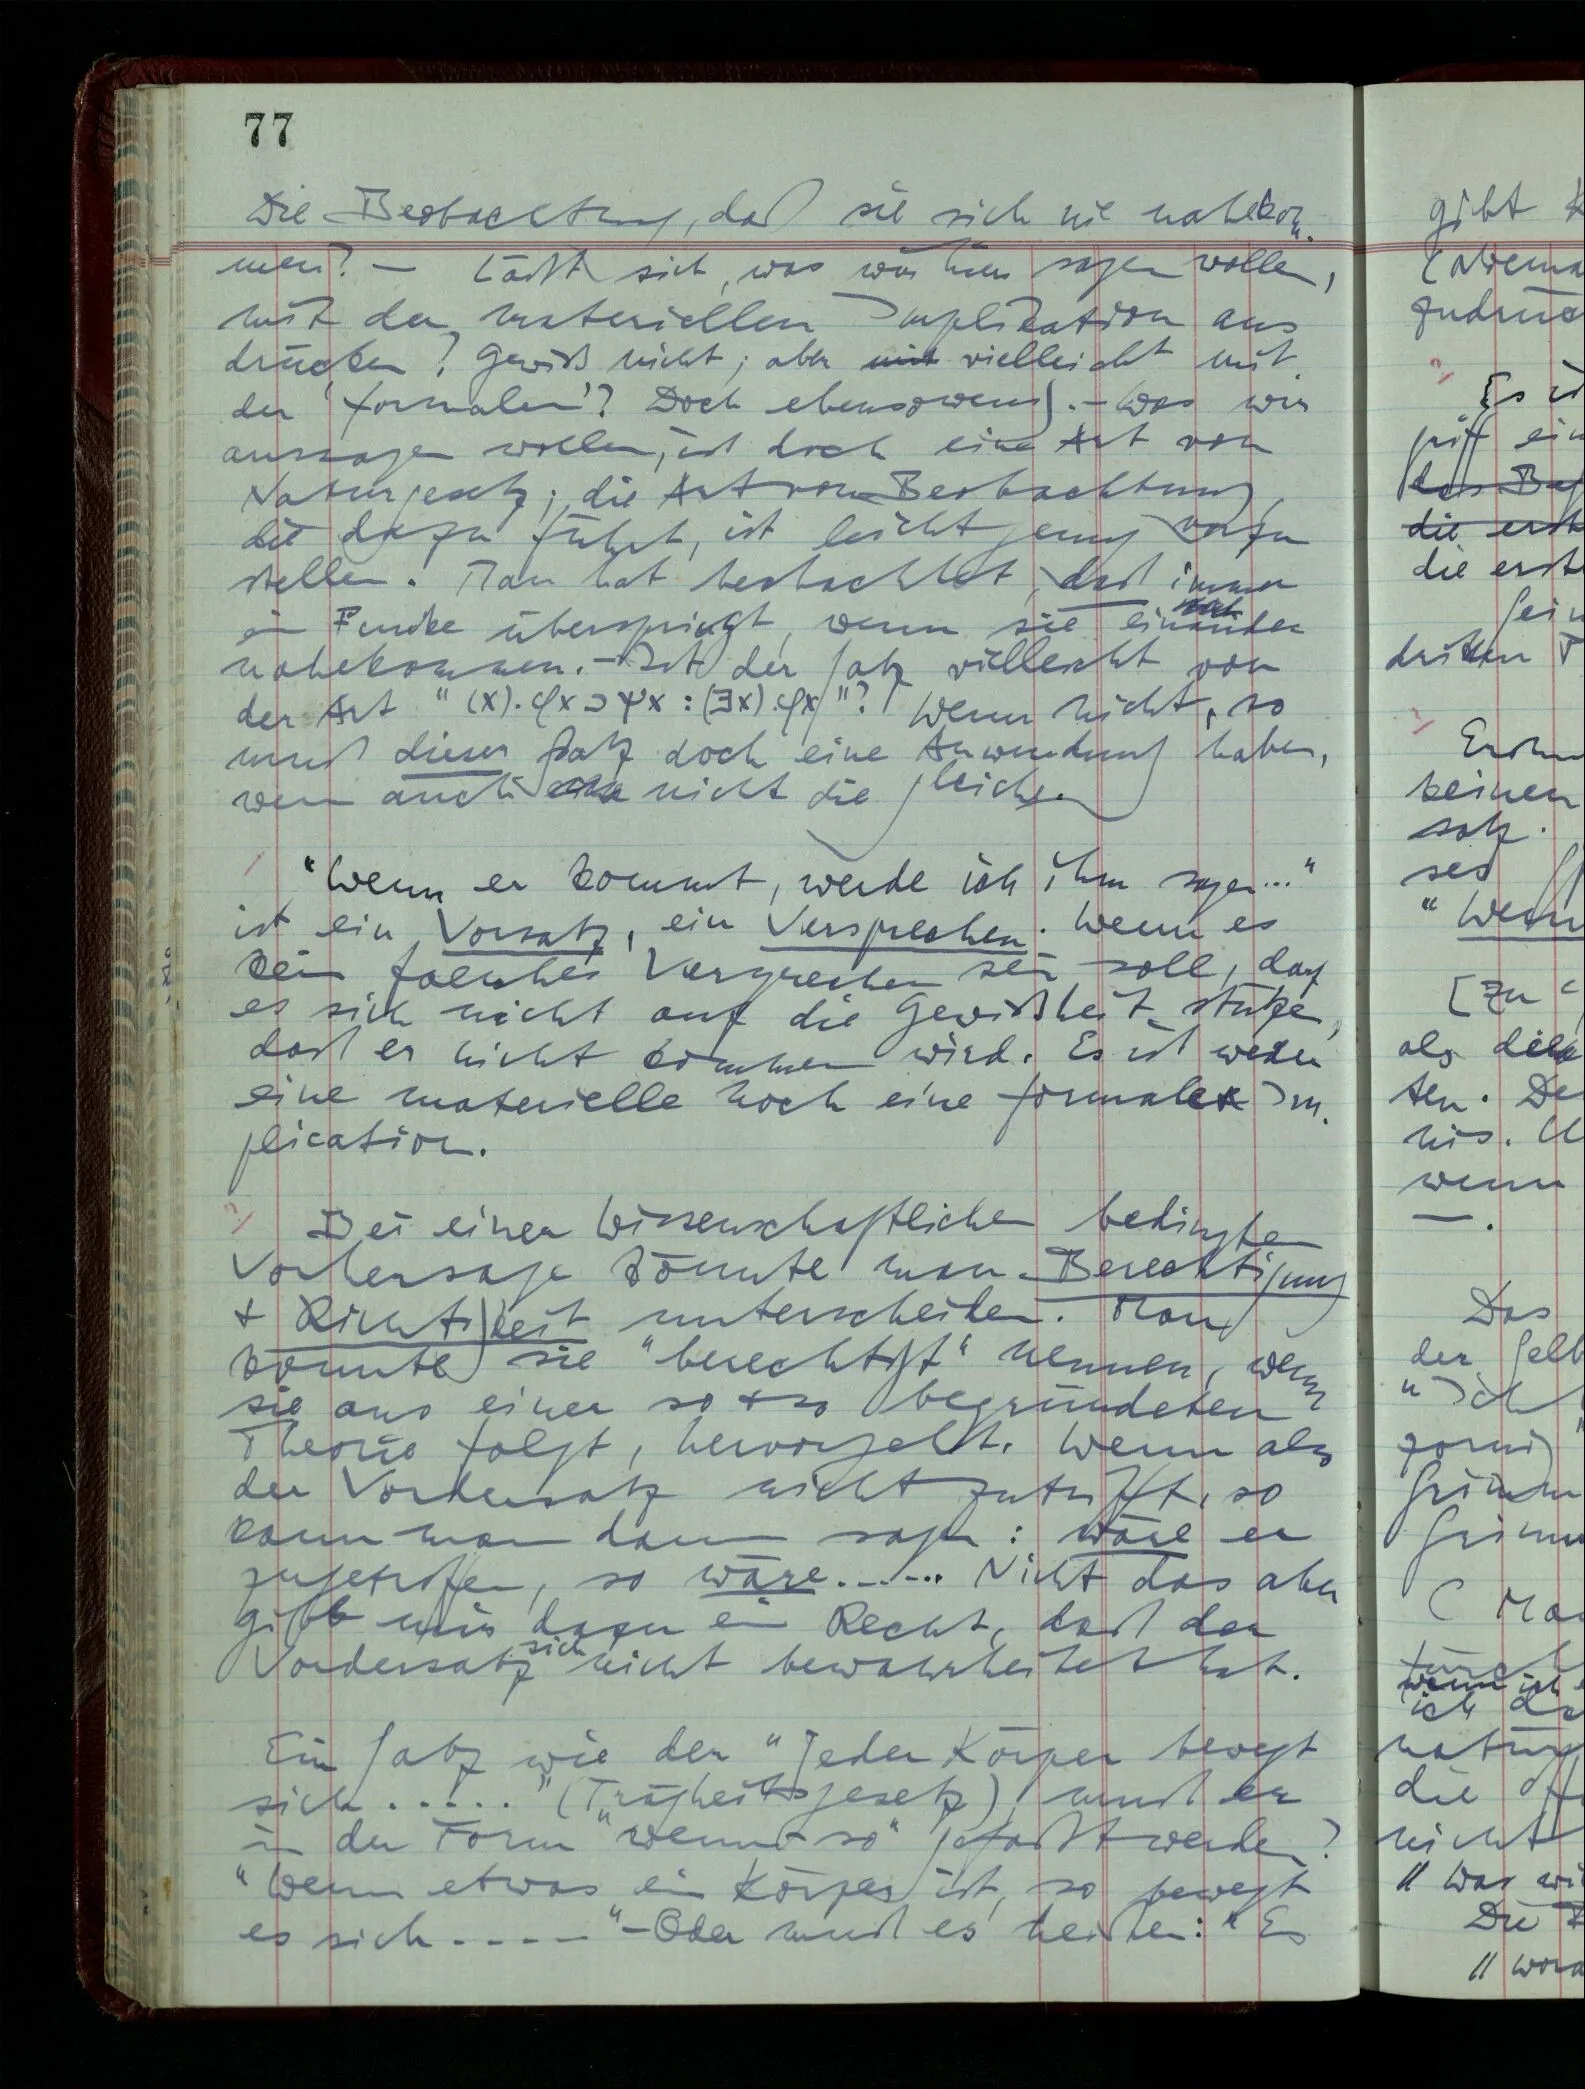 77
Die Beobachtung, daß sie sich nie nahekom-
men? – Läßt sich, was wir hier sagen wollen,
mit der materiellen Implikation aus
drücken? Gewiß nicht; aber mit vielleicht mit
der 'formalen'? Doch ebensowenig. – Was wir
aussagen wollen, ist doch eine Art von
Naturgesetz; die Art von Beobachtung,
die dazu führt, ist leicht genug vorzu
stellen. Man hat beobachtet, daß immer
ein Funke überspringt, wenn sie einander
nahekommen. – Ist der Satz vielleicht von
der Art "(x).φx⊃ψx:(∃x).φx"? Wenn nicht, so
muß dieser Satz doch eine Anwendung haben,
wenn auch nicht die gleiche.
"Wenn er kommt, werde ich ihm sagen..."
ist ein Vorsatz, ein Versprechen. Wenn es
kein falsches Versprechen sein soll, darf
es sich nicht auf die Gewißheit stützen,
daß er nicht kommen wird. Es ist weder
eine materielle noch eine formale Im-
plication.
Bei einer wissenschaftlichen bedingten
Vorhersage könnte man Berechtigung
+ Richtigkeit unterscheiden. Man
könnte sie "berechtigt" nennen, wenn
sie aus einer so + so begründeten
Theorie folgt, hervorgeht. Wenn also
der Vordersatz nicht zutrifft, so
kann man dann sagen: wäre er
zugetroffen, so wäre...... Nicht das aber
gibt mir dazu ein Recht, daß der
Vordersatz sich nicht bewahrheitet hat.
Ein Satz wie der "Jeder Körper bewegt
sich....." (Trägheitsgesetz), muß er
in der Form "wenn – so" gefaßt werden?
"Wenn etwas ein Körper ist, so bewegt
es sich....." – Oder muß es heißen: "Es
gibt
Es
die erst
dritten
keinen
satz.
[Zu
ten.
his.
wenn
– .
Das
der
"Ich
ich
die
nicht
// Was
Die
//